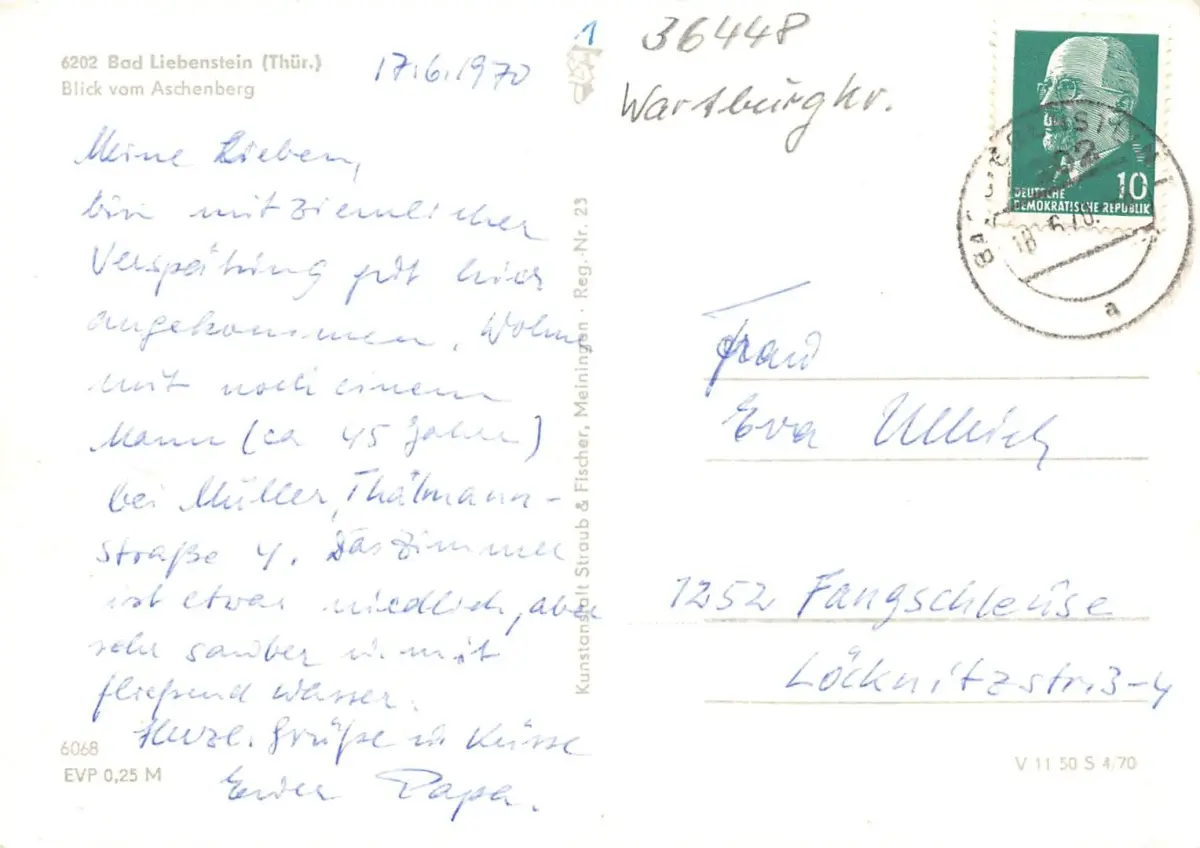 6202 Bad Liebenstein (Thür.)
Blick vom Aschenberg
17.6.1970
Meine Lieben,
bin mit ziemlicher
Verspätung gut hier
angekommen. Wohne
mit noch einem
Mann (ca 45 Jahre)
bei Müller, Thälmann-
straße 4. Das Zimmer
ist etwas niedlich, aber
sehr sauber u. mit
fließend Wasser.
Herzl. Grüße u. Küsse
Euer Papa.
6068
EVP 0,25 M
Kunstanstalt Straub & Fischer, Meiningen · Reg.-Nr. 23
1
36448
Wartburgkr.
DEUTSCHE
DEMOKRATISCHE REPUBLIK
10
BAD LIEBENSTEIN
18.6.70
a
Frau
Eva Ullrich
1252 Fangschleuse
Löcknitzstr. 3-4
V 11 50 S 4/70